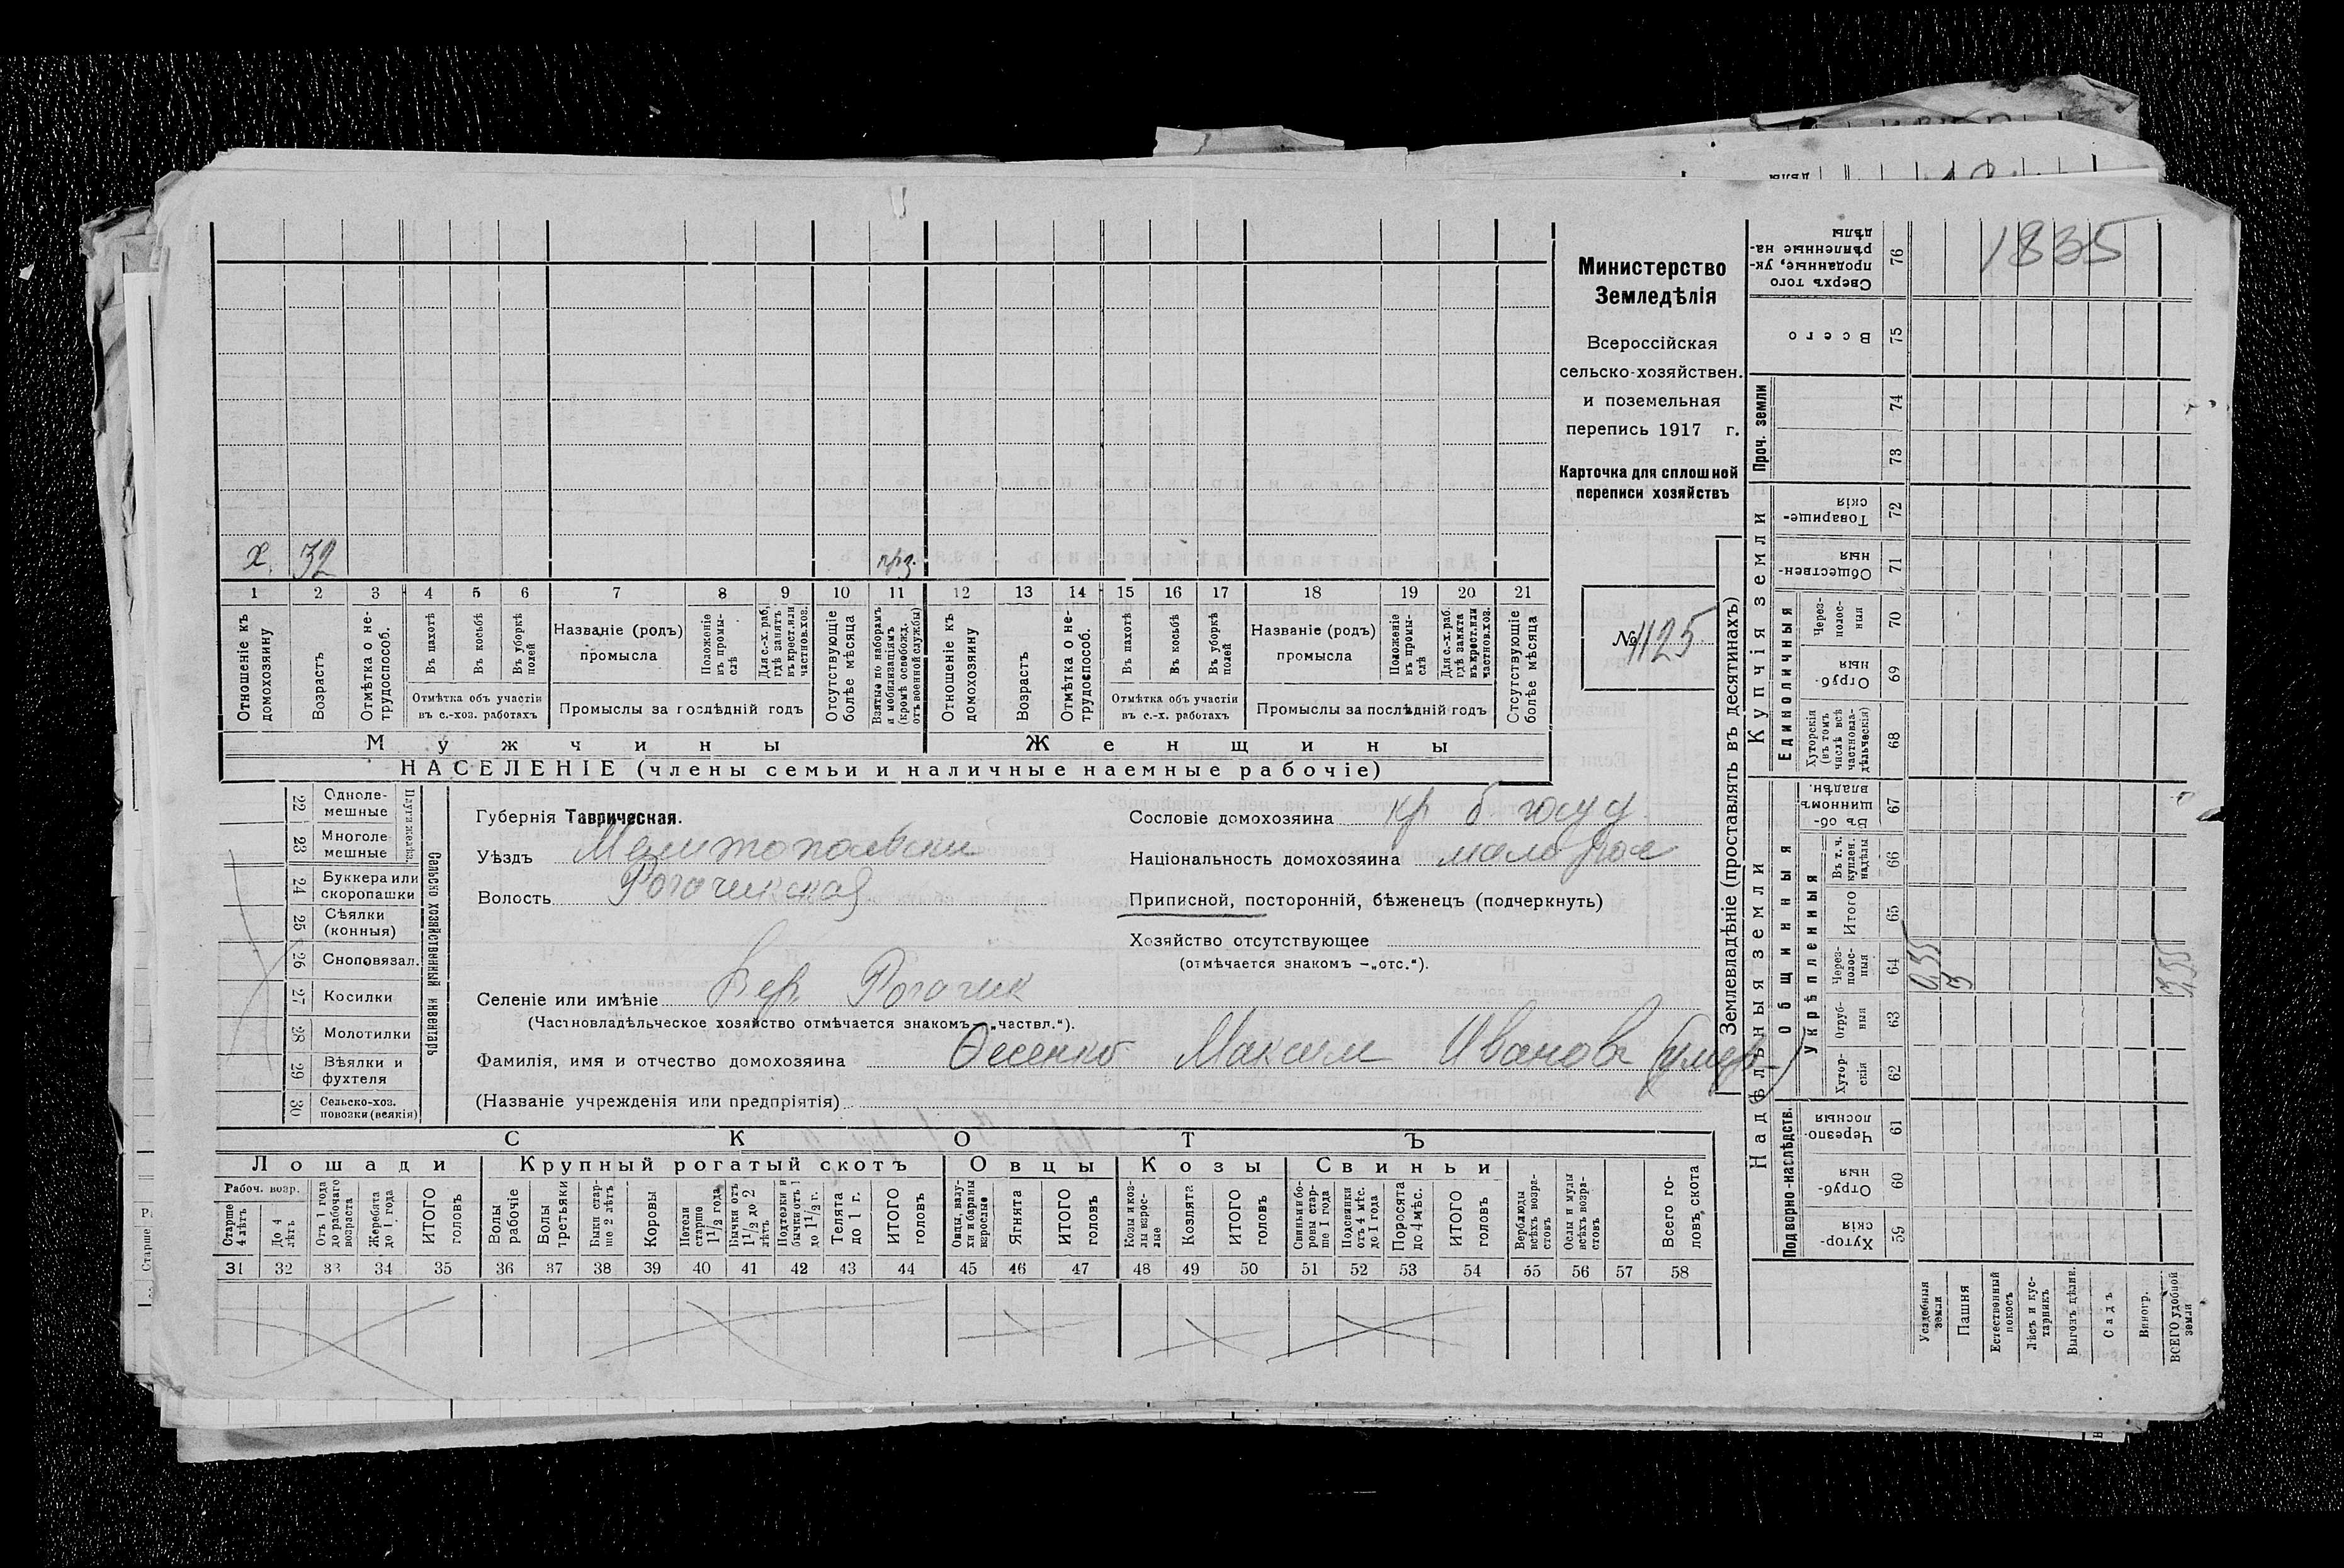 1835
Министерство
Земледѣлія
Всероссійская
сельско-хозяйствен.
и поземельная
перепись 1917 г.
Карточка для сплошной
переписи хозяйствъ
№ 1125
х. 32 прз.
1 2 3 4 5 6 7 8 9 10 11 12 13 14 15 16 17 18 19 20 21
Отношеніе къ домохозяину
Возрастъ
Отмѣтка о не-трудоспособ.
Въ пахотѣ
Въ косьбѣ
Въ уборкѣ полей
Отмѣтка объ участіи
въ с.-хоз. работахъ
Названіе (родъ)
промысла
Положеніе въ промы-слѣ
Для с.-х. раб, гдѣ занятъ въ крест. или частнов. хоз.
Промыслы за послѣдній годъ
Отсутствующіе болѣе мѣсяца
Взятые по наборамъ и мобилизаціямъ (кромѣ освобожд. отъ военной службы)
Отношеніе къ домохозяину
Возрастъ
Отмѣтка о не-трудоспособ.
Въ пахотѣ
Въ косьбѣ
Въ уборкѣ полей
Отмѣтка объ участіи
въ с.-х. работахъ
Названіе (родъ)
промысла
Положеніе въ промы-слѣ
Для с.-х. раб. гдѣ занята въ крест. или частнов. хоз.
Промыслы за послѣдній годъ
Отсутствующіе болѣе мѣсяца
Мужчины Женщины
НАСЕЛЕНІЕ (члены семьи и наличные наемные рабочіе)
22 Одноле-мешные
23 Многоле мешные
24 Буккера или скоропашки
25 Сѣялки (конныя)
26 Сноповязал.
27 Косилки
28 Молотилки
29 Вѣялки и фухтеля
30 Сельско-хоз. повозки (всякія)
Сельско хозяйственный инвентарь
Губернія Таврическая.
Уѣздъ Мелитопольски
Волость Рогачикская
Селеніе или имѣніе Вер. Рогачик
(Частновладѣльческое хозяйство отмѣчается знакомъ – „частвл.“).
Фамилія, имя и отчество домохозяина Ѳесенко Максим Иванов (умер)
(Названіе учрежденія или предпріятія)
Сословіе домохозяина кр б. госуд
Національность домохозяина малорос
Приписной, посторонній, бѣженецъ (подчеркнуть)
Хозяйство отсутствующее
(отмѣчается знакомъ –„отс.“).
СКОТЪ
Лошади Крупный рогатый скотъ Овцы Козы Свиньи
Рабоч. возр.
Старше 4 лѣтъ
До 4 лѣтъ
Отъ 1 года до рабочаго возраста
Жеребята до 1 года
ИТОГО головъ
Волы рабочіе
Волы третьяки
Быки стар-ше 2 лѣтъ
Коровы
Нетели старше 1 1/2 года
Бычки отъ 1 1/2 до 2 лѣтъ
Подтелки и бычки отъ 1 до 1 1/2 г.
Телята до 1 г.
ИТОГО головъ
Овцы, валу-хи и бараны взрослые
Ягнята
ИТОГО головъ
Козы и коз-лы взрос-лые
Козлята
ИТОГО головъ
Свиньи и бо-ровы стар-ше 1 года
Подсвинки отъ 4 мѣс. до 1 года
Поросята до 4 мѣс.
ИТОГО головъ
Верблюды всѣхъ возра-стовъ
Ослы и мулы всѣхъ возра-стовъ
Всего го-ловъ скота
31 32 33 34 35 36 37 38 39 40 41 42 43 44 45 46 47 48 49 50 51 52 53 54 55 56 57 58
Землевладѣніе (проставлять въ десятинахъ)
Надѣльныя земли
Купчія земли
Проч. земли
Подворно-наслѣдств.
Общинныя
укрѣпленныя
Единоличныя
Хутор-скія 59
Отруб-ныя 60
Черезпо-лосныя 61
Хутор-скія 62
Отруб-ныя 63
Через-полос-ныя 64
Итого 65
Въ т. ч. куплен. надѣлы 66
Въ об-щинномъ владѣн. 67
Хуторскія (въ томъ числѣ всѣ частновла-дѣльческія) 68
Отруб-ныя 69
Через-полос-ныя 70
Обществен-ныя 71
Товарище-скія 72
73
74
Всего 75
Сверхъ того проданные, ук-рѣпленные на-дѣлы 76
0,35
3
3,35
Усадебная земля
Пашня
Естественный покосъ
Лѣсъ и кус-тарникъ
Выгонъ цѣлин.
Садъ
Виногр.
ВСЕГО удобной земли